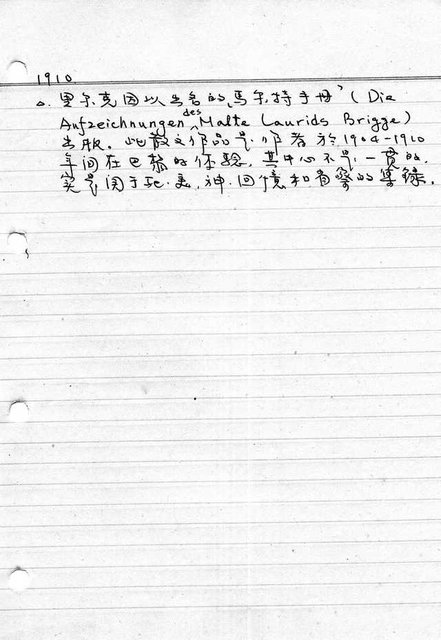 1910
△. 里尔克因以出名的"马尔特手册"(Die
Aufzeichnungen des Malte Laurids Brigge)
出版。此散文作品是作者於1904-1910
年间在巴黎的体驗。其中心不是一貫的,
实是関于死.美.神.回憶和省察的集録。